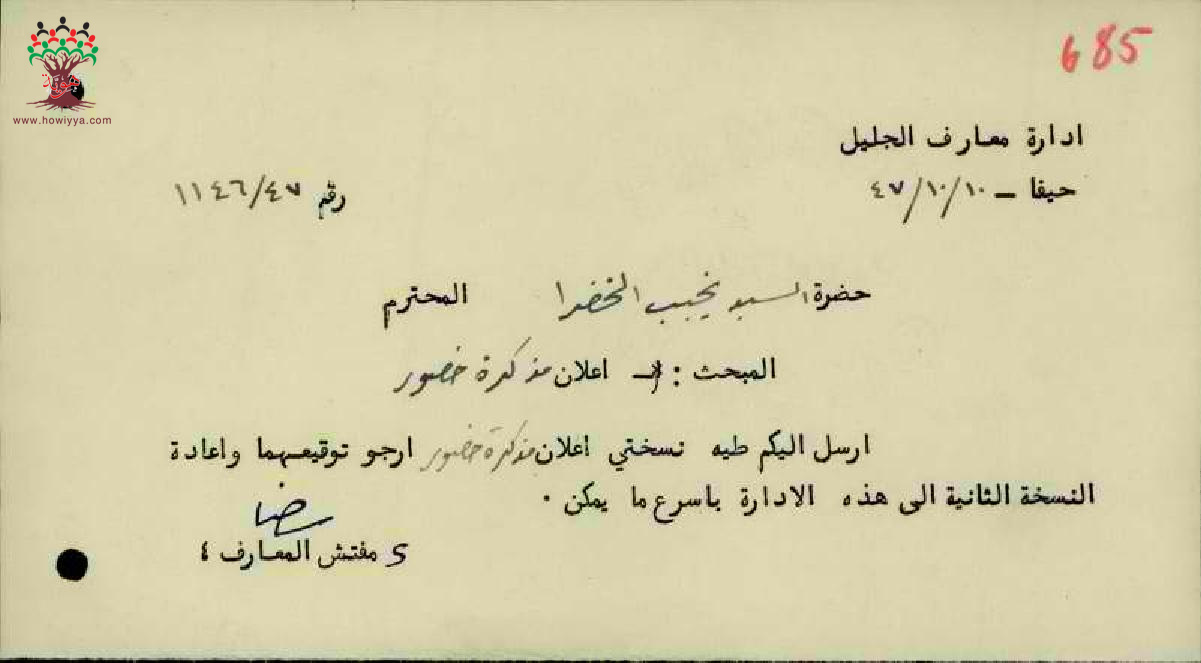 685
هوية
www.howiyya.com
ادارة معارف الجليل
حيفا – ٤٧/١٠/١٠
رقم ١١٤٦/٤٧
حضرة السيد نجيب الخضرا المحترم
المبحث : – اعلان مذكرة حضور
ارسل اليكم طيه نسختي اعلان مذكرة حضور ارجو توقيعهما واعادة
النسخة الثانية الى هذه الادارة باسرع ما يمكن ٠
مفتش المعارف ٤